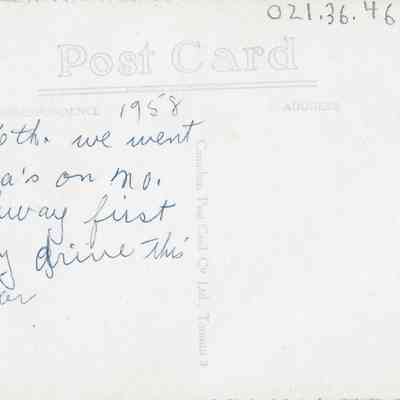 021.36.46
Post Card
RRESPONDENCE
ADDRESS
1958
6th. we went
a's on no.
way first
y drive this
er
Canadian Post Card Co. Ltd., Toronto 2